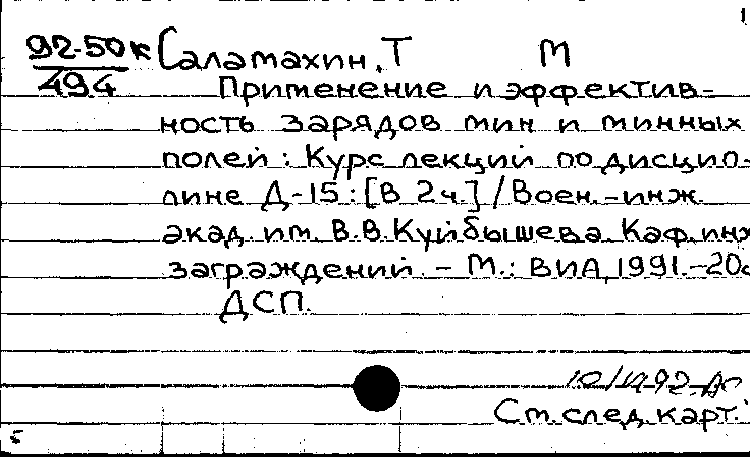 1
92-50к Саламахин, Т М
494
Применение и эффектив-
ность зарядов мин и минных
полей: Курс лекций по дисцип-
лине Д-15: [В 2ч.] / Воен.-инж.
акад. им. В.В.Куйбышева. Каф. инж
заграждений. - М.: ВИА, 1991.-20с
ДСП.
См. след. карт.
5